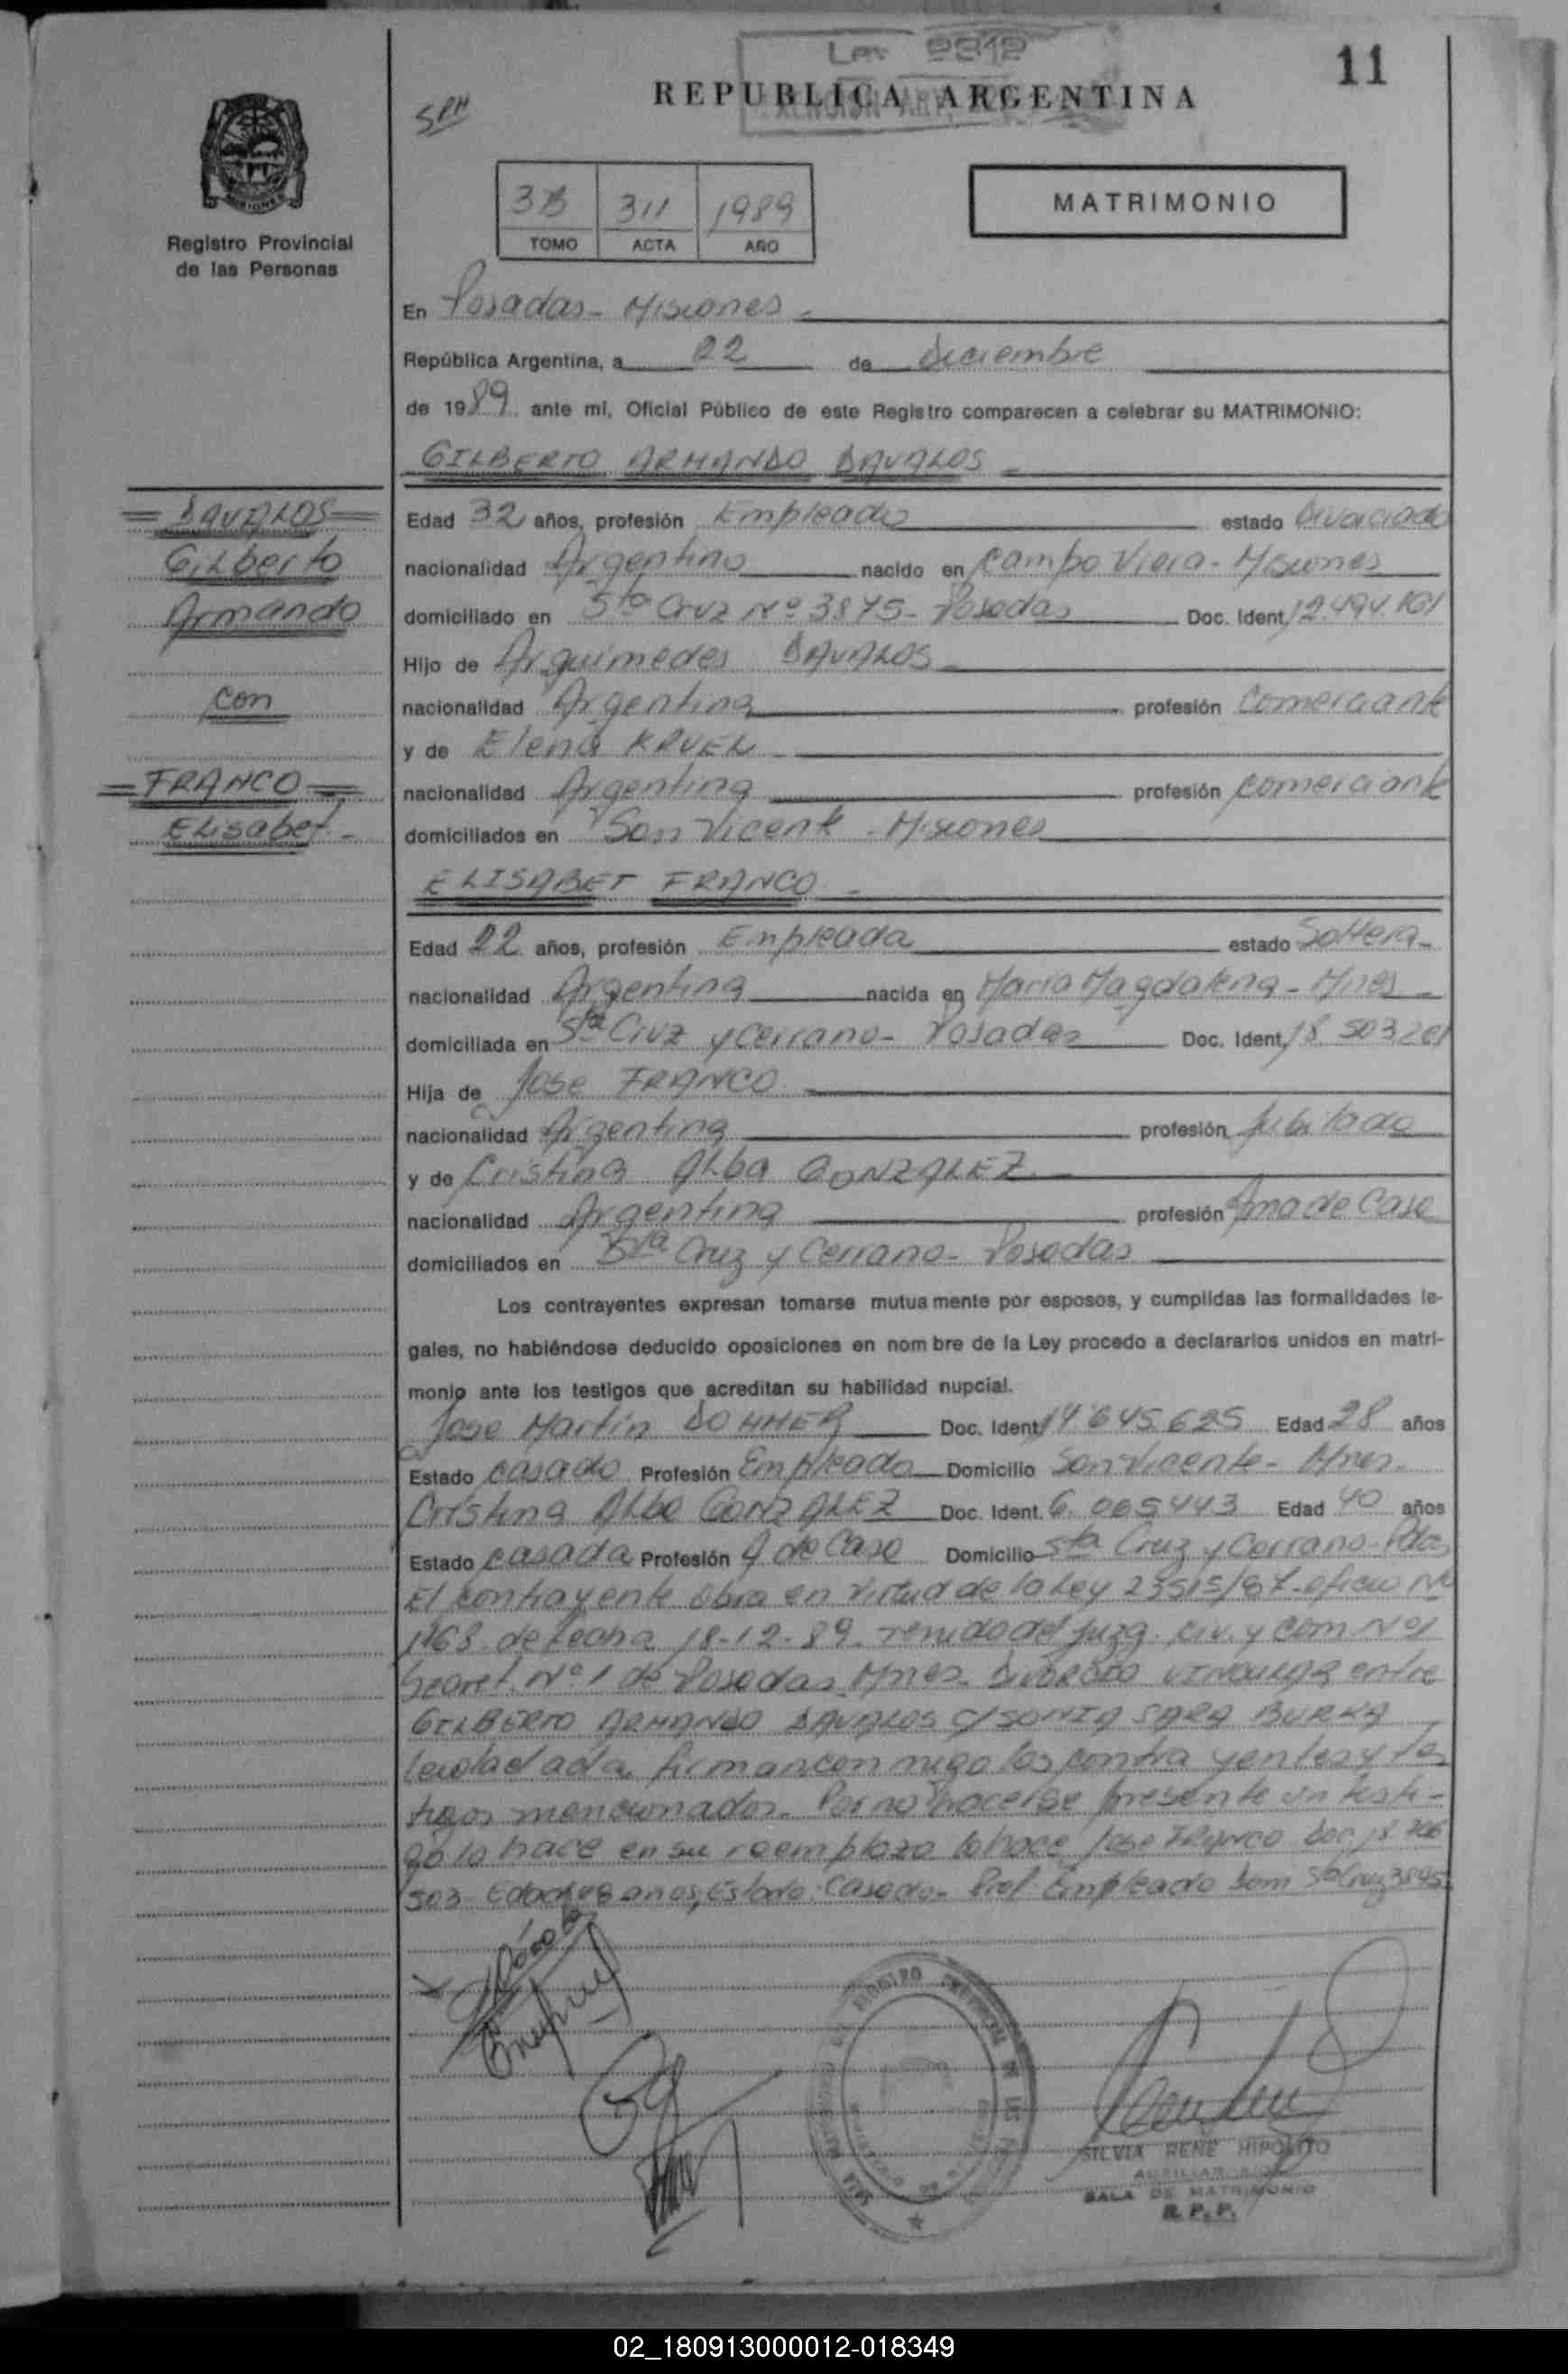 Ley 2312
11
SPH
REPUBLICA ARGENTINA
Registro Provincial
de las Personas
311 1989
TOMO ACTA AÑO
MATRIMONIO
En Posadas - Misiones -
República Argentina, a 22 de diciembre
de 1989 ante mi, Oficial Público de este Registro comparecen a celebrar su MATRIMONIO:
GILBERTO ARMANDO DAVALOS -
= DAVALOS =
Gilberto
Armando
con
= FRANCO =
Elisabet -
Edad 32 años, profesión Empleado estado divorciado
nacionalidad Argentino nacido en Campo Viera - Misiones
domiciliado en Sta Cruz Nº 3875 - Posadas Doc. Ident. 12.494.161
Hijo de Arquimedes DAVALOS
nacionalidad Argentina profesión Comerciante
y de Elena KRUEL
nacionalidad Argentina profesión comerciante
domiciliados en San Vicente - Misiones
ELISABET FRANCO -
Edad 22 años, profesión Empleada estado Soltera -
nacionalidad Argentina nacida en Maria Magdalena - Mnes -
domiciliada en Sta Cruz y Cerrano - Posadas Doc. Ident. 18.503.201
Hija de Jose FRANCO
nacionalidad Argentina profesión Jubilado
y de Cristina Alba GONZALEZ
nacionalidad Argentina profesión Ama de Casa
domiciliados en Sta Cruz y Cerrano - Posadas
Los contrayentes expresan tomarse mutuamente por esposos, y cumplidas las formalidades le-
gales, no habiéndose deducido oposiciones en nombre de la Ley procedo a declararlos unidos en matri-
monio ante los testigos que acreditan su habilidad nupcial.
Jose Martin DOHMER Doc. Ident. 14.645.625 Edad 28 años
Estado casado Profesión Empleado Domicilio San Vicente - Mnes.
Cristina Alba GONZALEZ Doc. Ident. 6.065443 Edad 40 años
Estado casada Profesión A de Casa Domicilio Sta Cruz y Cerrano - Pdas
El contrayente obra en virtud de la Ley 23515/87 - oficio Nº
1168 de fecha 18-12-89 - venido del Juzg. civ. y Com Nº1
Secret. Nº 1 de Posadas Mnes. DIVORCIO VINCULAR entre
GILBERTO ARMANDO DAVALOS c/SONIA SARA BURKA
Leida el acta firman conmigo los contrayentes y tes
tigos mencionados. Por no hacerse presente un testi-
go lo hace en su reemplazo lo hace Jose FRANCO Doc. 18.706
503 - Edad años, Estado: Casado - Prof Empleado Dom Sta Cruz 3895
SILVIA RENE HIPOLITO
AUXILIAR
SALA DE MATRIMONIO
R.P.P.
02_180913000012-018349